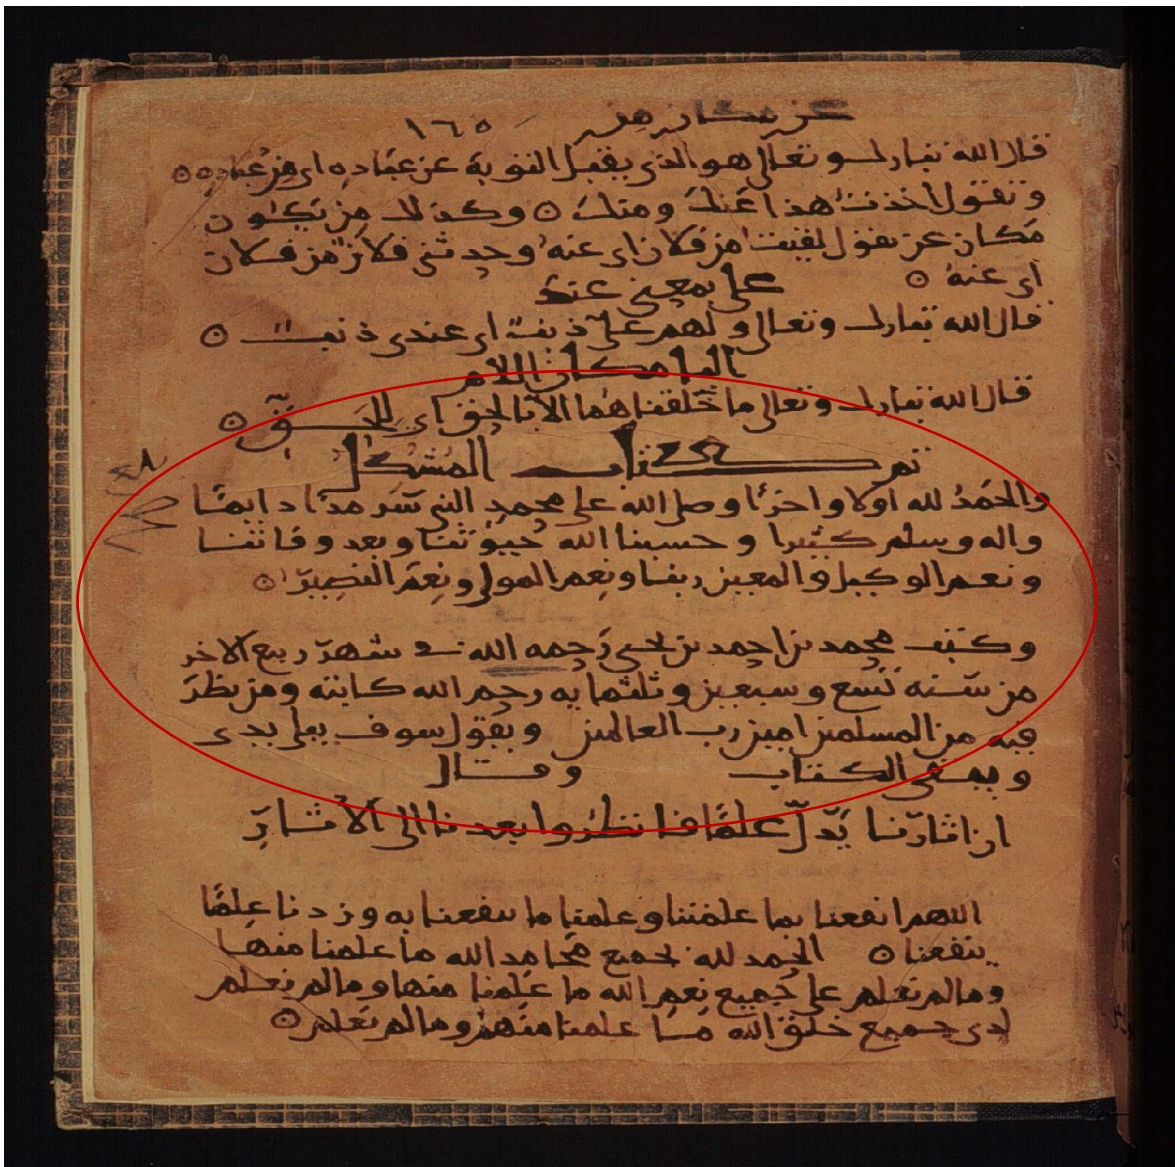 عن مكان من ١٦٥
قال الله تبارك وتعالى هو الذى يقبل التوبة عن عباده اى من عباده
وتقول اخذت هذا عنك ومنك وكذلك من تكون
مكان عن تقول لقيت من فلان اى عنه وحدثنى فلان من فلان
اى عنه
على بمعنى عند
قال الله تبارك وتعالى ولهم على ذنب اى عندى ذنب
البا مكان اللام
قال الله تبارك وتعالى ما خلقناهما الا بالحق اى للحق
تم كتاب المشكل
والحمد لله اولا واخرا وصلى الله على محمد النبى سرمدا دايما
واله وسلم كثيرا وحسبنا الله حيوتنا وبعد وفاتنا
ونعم الوكيل والمعين ربنا ونعم المولى ونعم النصير
وكتب محمد بن احمد بن يحيى رحمه الله فى شهر ربيع الاخر
من سنه تسع وسبعين وثلثمايه رحم الله كاتبه ومن نظر
فيه من المسلمين امين رب العالمين ويقول سوف يبلى يدى
ويبقى الكتاب وقال
ان اثارنا تدل علينا فانظروا بعدنا الى الاثار
اللهم انفعنا بما علمتنا وعلمنا ما ينفعنا به وزدنا علما
ينفعنا الحمد لله بجميع محامد الله ما علمنا منها
وما لم نعلم على جميع نعم الله ما علمنا منها وما لم نعلم
لدى جميع خلق الله ما علمنا منهم وما لم نعلم